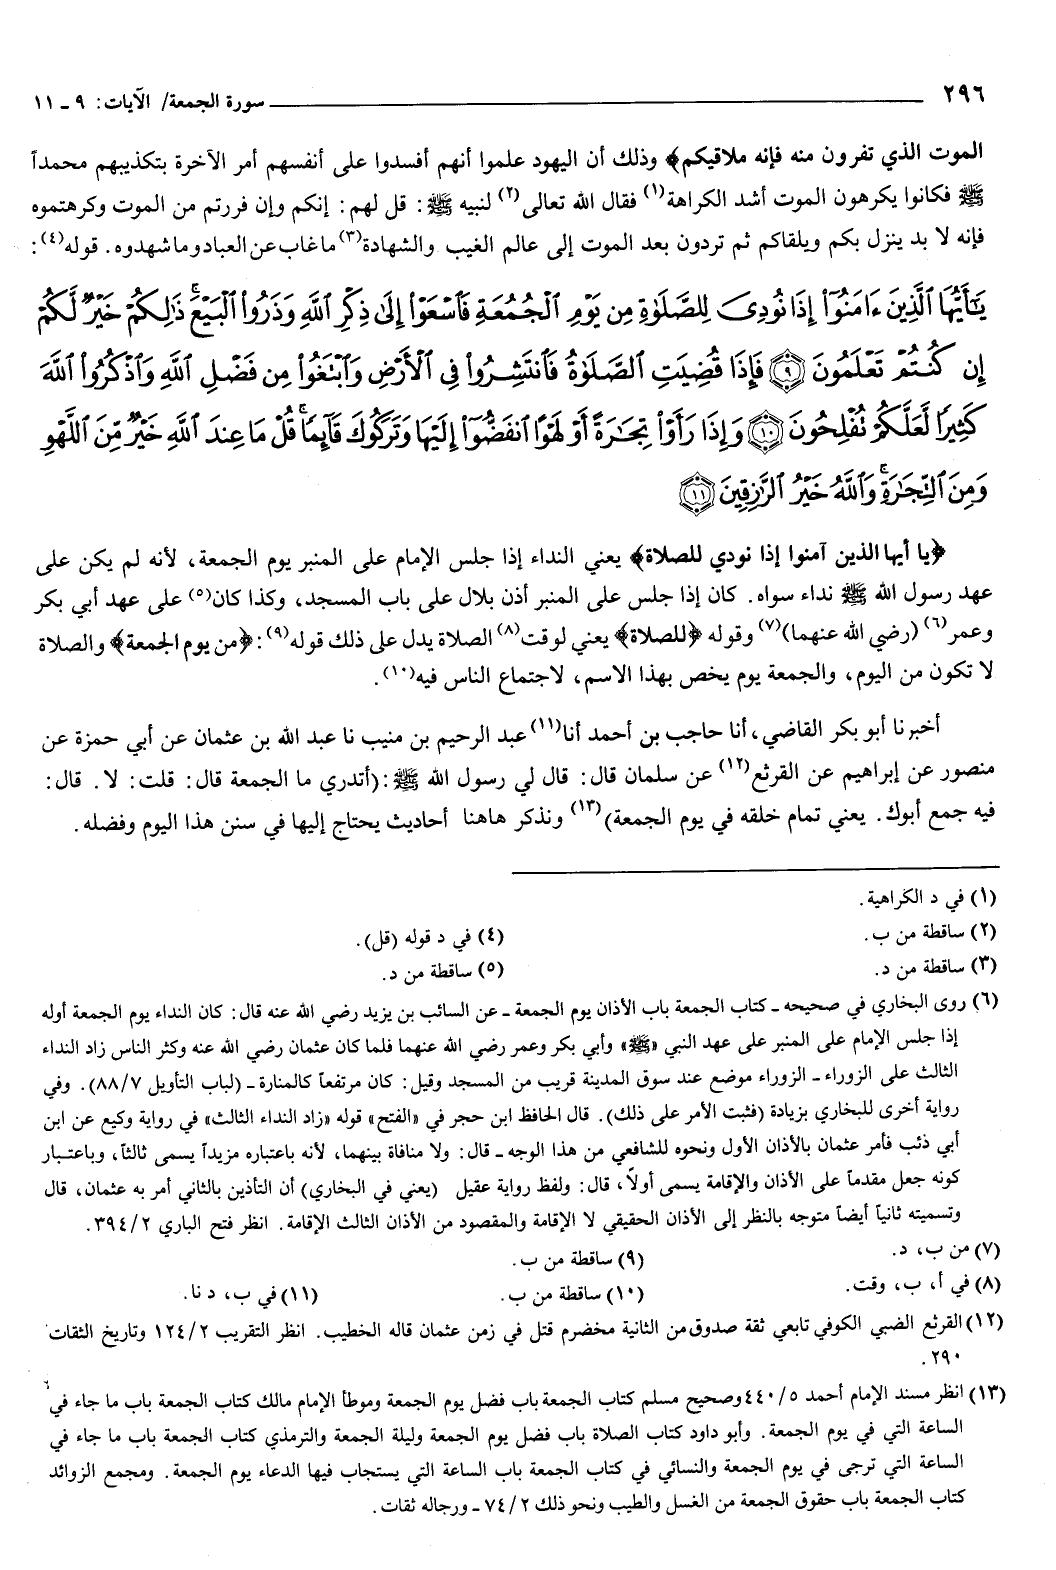 ٢٩٦ سورة الجمعة/ الآيات: ٩ ـ ١١
الموت الذي تفرون منه فإنه ملاقيكم﴾ وذلك أن اليهود علموا أنهم أفسدوا على أنفسهم أمر الآخرة بتكذيبهم محمداً
ﷺ فكانوا يكرهون الموت أشد الكراهة(١) فقال الله تعالى(٢) لنبيه ﷺ: قل لهم: إنكم وإن فررتم من الموت وكرهتموه
فإنه لا بد ينزل بكم ويلقاكم ثم تردون بعد الموت إلى عالم الغيب والشهادة(٣) ما غاب عن العباد وما شهدوه. قوله(٤):
يَـٰٓأَيُّهَا ٱلَّذِينَ ءَامَنُوٓا۟ إِذَا نُودِىَ لِلصَّلَوٰةِ مِن يَوْمِ ٱلْجُمُعَةِ فَٱسْعَوْا۟ إِلَىٰ ذِكْرِ ٱللَّهِ وَذَرُوا۟ ٱلْبَيْعَ ۚ ذَٰلِكُمْ خَيْرٌ لَّكُمْ
إِن كُنتُمْ تَعْلَمُونَ ٩ فَإِذَا قُضِيَتِ ٱلصَّلَوٰةُ فَٱنتَشِرُوا۟ فِى ٱلْأَرْضِ وَٱبْتَغُوا۟ مِن فَضْلِ ٱللَّهِ وَٱذْكُرُوا۟ ٱللَّهَ
كَثِيرًا لَّعَلَّكُمْ تُفْلِحُونَ ١٠ وَإِذَا رَأَوْا۟ تِجَـٰرَةً أَوْ لَهْوًا ٱنفَضُّوٓا۟ إِلَيْهَا وَتَرَكُوكَ قَآئِمًا ۚ قُلْ مَا عِندَ ٱللَّهِ خَيْرٌ مِّنَ ٱللَّهْوِ
وَمِنَ ٱلتِّجَـٰرَةِ ۚ وَٱللَّهُ خَيْرُ ٱلرَّٰزِقِينَ ١١
﴿يا أيها الذين آمنوا إذا نودي للصلاة﴾ يعني النداء إذا جلس الإمام على المنبر يوم الجمعة، لأنه لم يكن على
عهد رسول الله ﷺ نداء سواه. كان إذا جلس على المنبر أذن بلال على باب المسجد، وكذا كان(٥) على عهد أبي بكر
وعمر(٦) (رضي الله عنهما)(٧) وقوله ﴿للصلاة﴾ يعني لوقت(٨) الصلاة يدل على ذلك قوله(٩): ﴿من يوم الجمعة﴾ والصلاة
لا تكون من اليوم، والجمعة يوم يخص بهذا الاسم، لاجتماع الناس فيه(١٠).
أخبرنا أبو بكر القاضي، أنا حاجب بن أحمد أنا(١١) عبد الرحيم بن منيب نا عبد الله بن عثمان عن أبي حمزة عن
منصور عن إبراهيم عن القرثع(١٢) عن سلمان قال: قال لي رسول الله ﷺ: (أتدري ما الجمعة قال: قلت: لا. قال:
فيه جمع أبوك. يعني تمام خلقه في يوم الجمعة)(١٣) ونذكر هاهنا أحاديث يحتاج إليها في سنن هذا اليوم وفضله.
(١) في د الكراهية.
(٢) ساقطة من ب. (٤) في د قوله (قل).
(٣) ساقطة من د. (٥) ساقطة من د.
(٦) روى البخاري في صحيحه ـ كتاب الجمعة باب الأذان يوم الجمعة ـ عن السائب بن يزيد رضي الله عنه قال: كان النداء يوم الجمعة أوله
إذا جلس الإمام على المنبر على عهد النبي «ﷺ» وأبي بكر وعمر رضي الله عنهما فلما كان عثمان رضي الله عنه وكثر الناس زاد النداء
الثالث على الزوراء ـ الزوراء موضع عند سوق المدينة قريب من المسجد وقيل: كان مرتفعاً كالمنارة ـ (لباب التأويل ٧/ ٨٨). وفي
رواية أخرى للبخاري بزيادة (فثبت الأمر على ذلك). قال الحافظ ابن حجر في «الفتح» قوله «زاد النداء الثالث» في رواية وكيع عن ابن
أبي ذئب فأمر عثمان بالأذان الأول ونحوه للشافعي من هذا الوجه ـ قال: ولا منافاة بينهما، لأنه باعتباره مزيداً يسمى ثالثاً، وباعتبار
كونه جعل مقدماً على الأذان والإقامة يسمى أولاً، قال: ولفظ رواية عقيل (يعني في البخاري) أن التأذين بالثاني أمر به عثمان، قال
وتسميته ثانياً أيضاً متوجه بالنظر إلى الأذان الحقيقي لا الإقامة والمقصود من الأذان الثالث الإقامة. انظر فتح الباري ٢/ ٣٩٤.
(٧) من ب، د. (٩) ساقطة من ب.
(٨) في أ، ب، وقت. (١٠) ساقطة من ب. (١١) في ب، د نا.
(١٢) القرثع الضبي الكوفي تابعي ثقة صدوق من الثانية مخضرم قتل في زمن عثمان قاله الخطيب. انظر التقريب ٢/ ١٢٤ وتاريخ الثقات
٢٩٠.
(١٣) انظر مسند الإمام أحمد ٥/ ٤٤٠ وصحيح مسلم كتاب الجمعة باب فضل يوم الجمعة وموطأ الإمام مالك كتاب الجمعة باب ما جاء في
الساعة التي في يوم الجمعة. وأبو داود كتاب الصلاة باب فضل يوم الجمعة وليلة الجمعة والترمذي كتاب الجمعة باب ما جاء في
الساعة التي ترجى في يوم الجمعة والنسائي في كتاب الجمعة باب الساعة التي يستجاب فيها الدعاء يوم الجمعة. ومجمع الزوائد
كتاب الجمعة باب حقوق الجمعة من الغسل والطيب ونحو ذلك ٢/ ٧٤ ـ ورجاله ثقات.